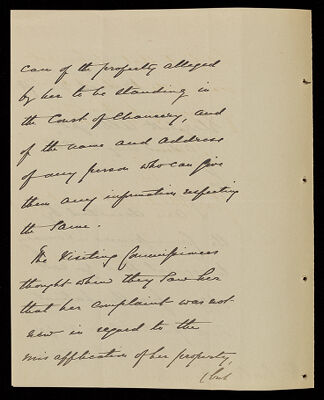 case of the property alleged
by her to be standing in
the Court of Chancery, and
of the name and address
of any person who can give
them any information respecting
the same.
The Visiting Commissioners
thought when they saw her
that her complaint was not
new in regard to the
misapplication of her property,
(but